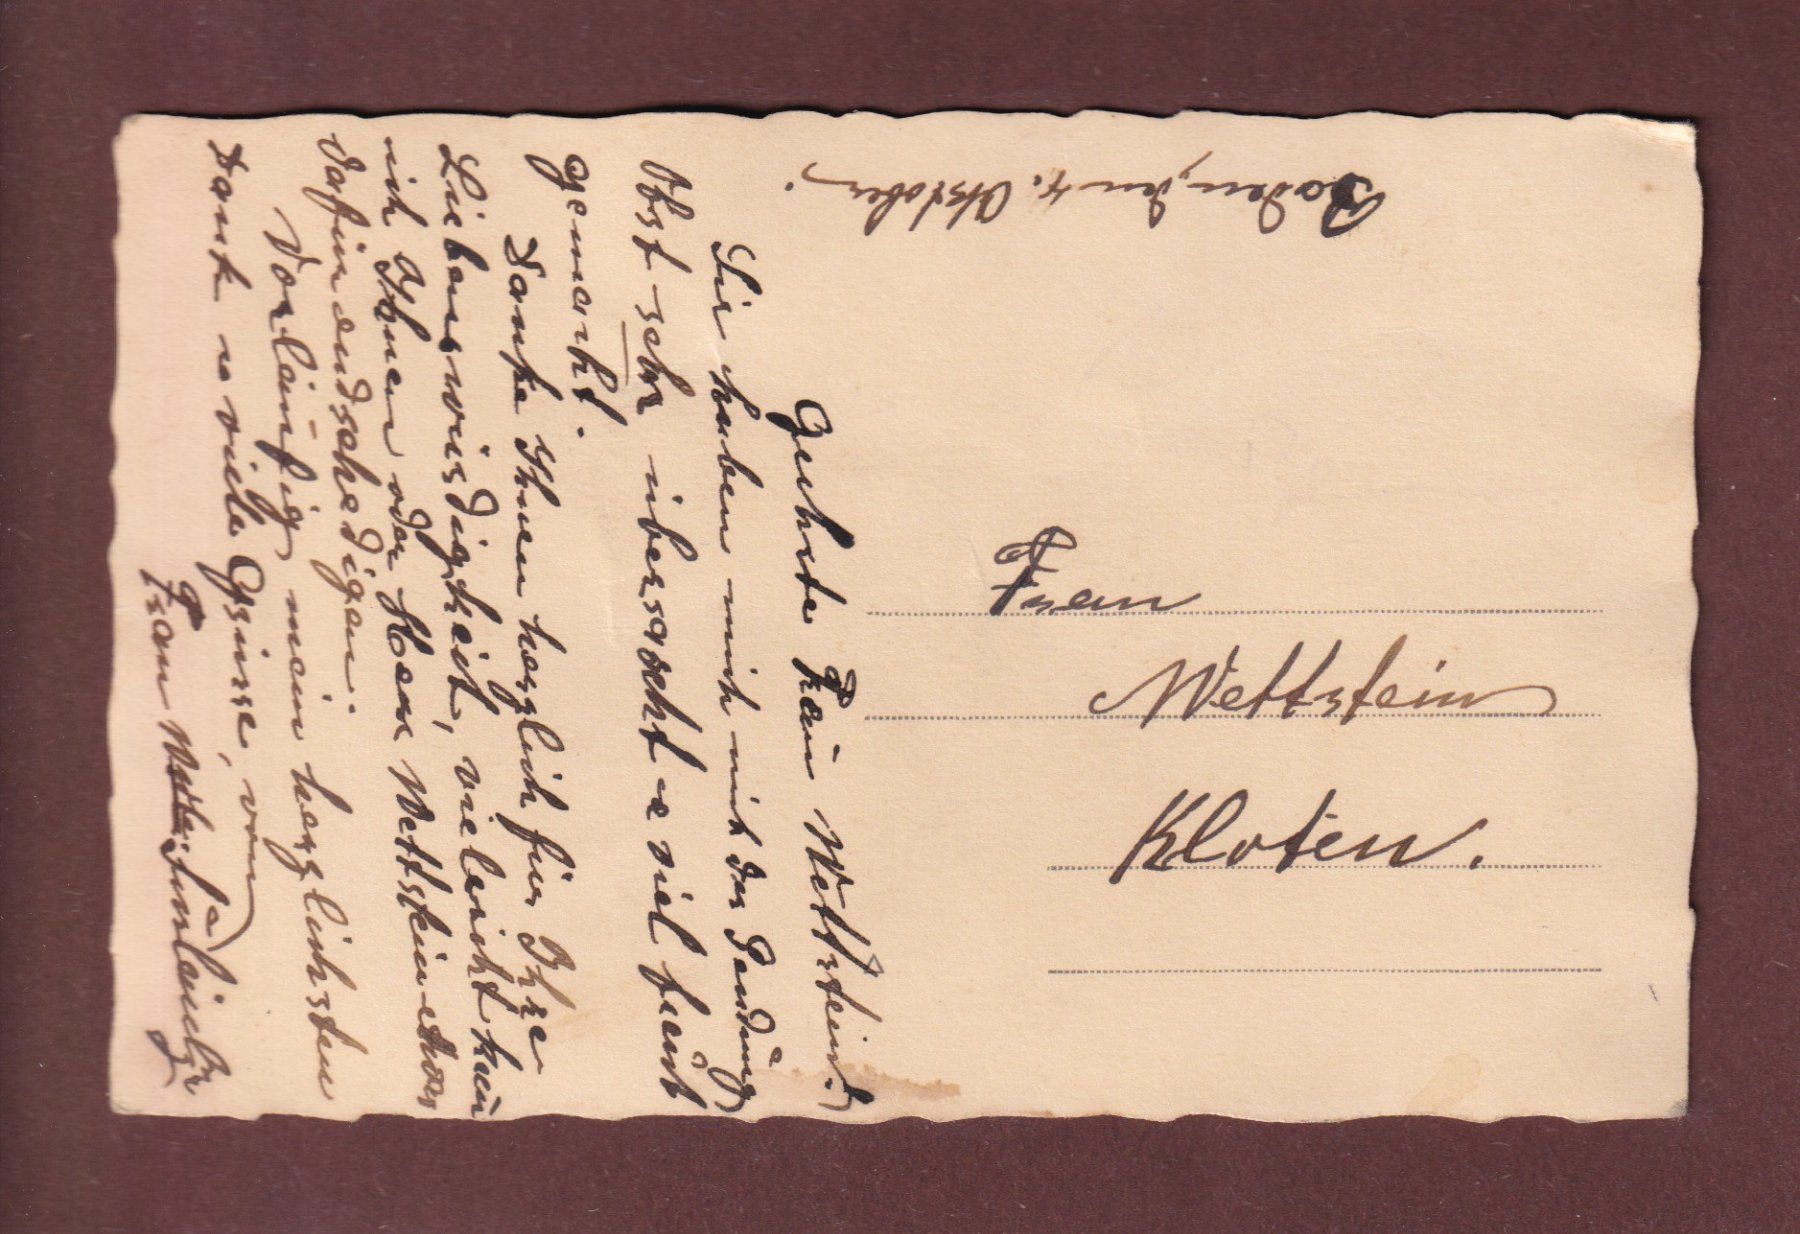 Baden, den 4. Oktober.
Geehrte Frau Wettstein!
Sie haben mich mit der Sendung
Obst sehr überrascht u viel Freud
gemacht.
Danke Ihnen herzlich für Ihre
Liebenswürdigkeit, vieleicht kan
ich Ihnen oder Herr Wettstein etwas
dafür endschedigen.
Vorläufig mein herzlichsten
Dank u viele Grüsse, von
Frau
Frau
Wettstein
Kloten.